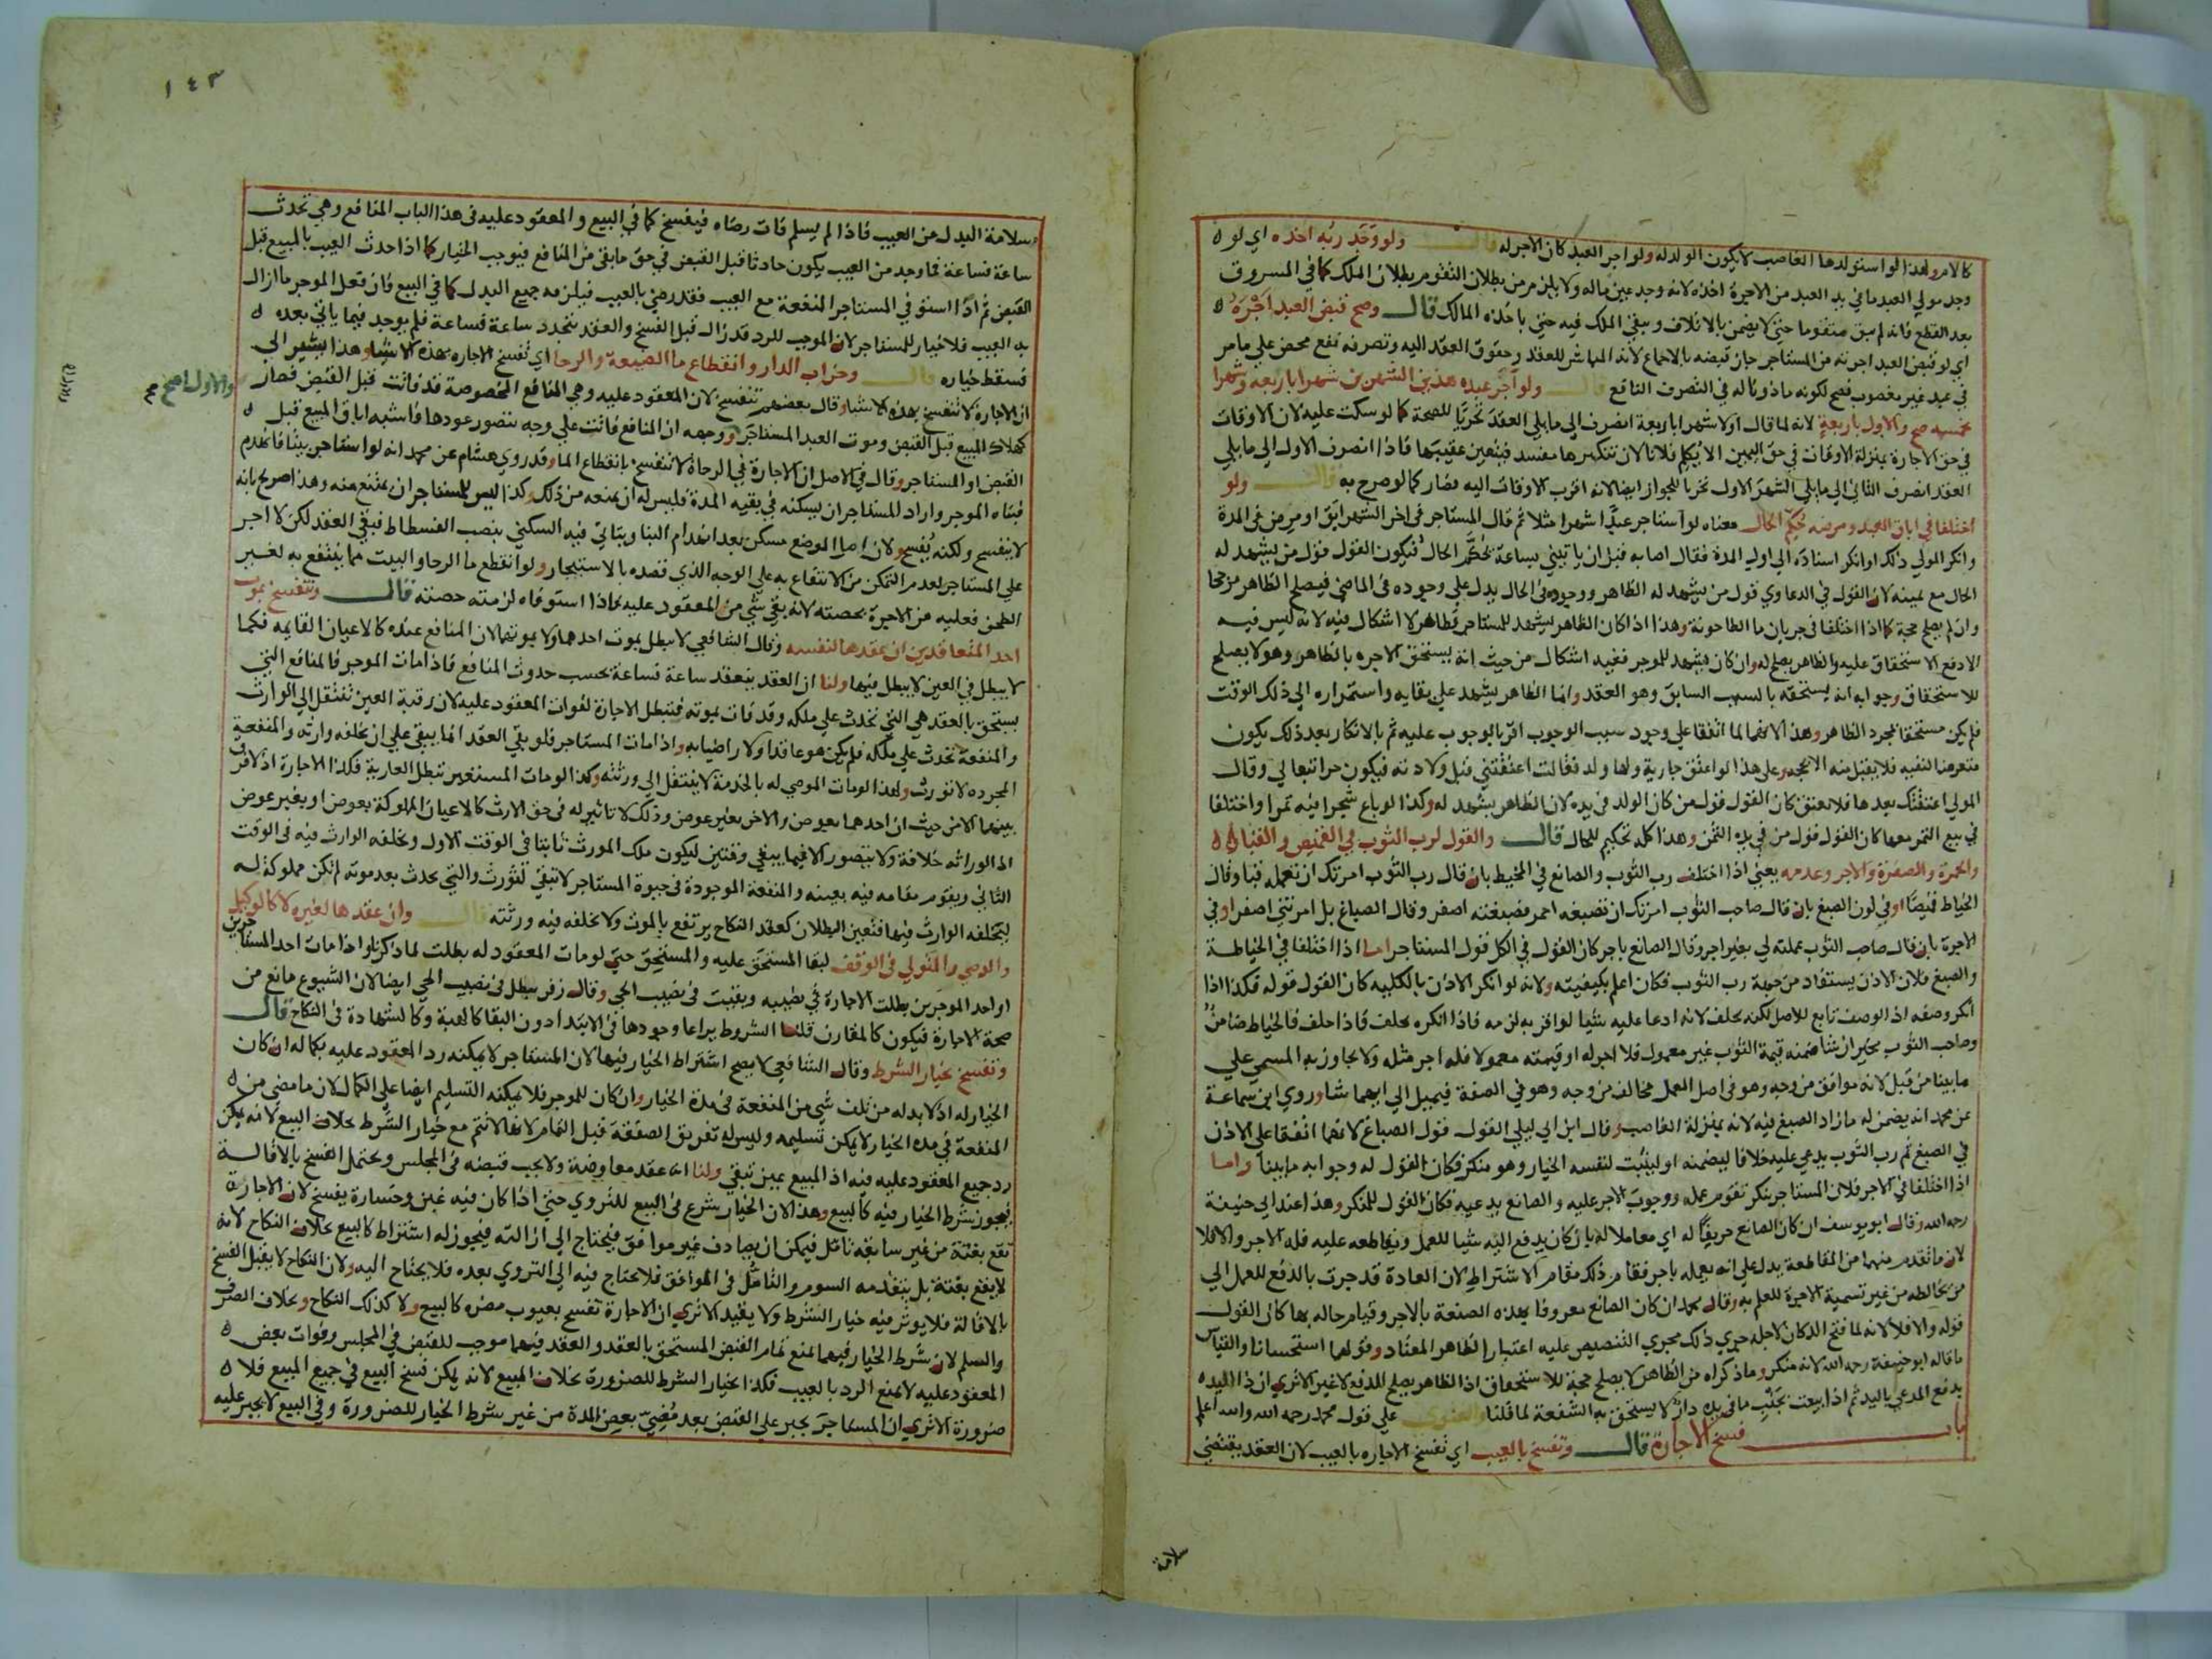 كالام ولهذا لو استولدها الغاصب لا يكون الولد له ولو اجر العبد كان الاجر له قال ولو وجد ربه اخذه اي لو
وجد مولي العبد ما في يد العبد من الاجرة اخذه لانه وجد عين ماله ولا يلزم من بطلان التقوم بطلان الملك كما في المسروق
بعد القطع فانه لم يبق متقوما حتي لا يضمن بالاتلاف ويبقي الملك فيه حتي ياخذه المالك قال وصح قبض العبد اجره
اي لو قبض العبد اجرته من المستاجر جاز قبضه بالاجماع لانه المباشر للعقد وحقوق العقد اليه وتصرفه نفع محض علي ما مر
في عبد غير مغصوب فصح لكونه ماذونا له في التصرف النافع قال ولو اجر عبده هذين الشهرين شهرا باربعة وشهرا
بخمسة صح والاول باربعة لانه لما قال اولا شهرا باربعة انصرف الي ما يلي العقد تحريا للصحة كما لو سكت عليه لان الاوقات
في حق الاجارة بمنزلة الاوقات في حق اليمين الا يكلم فلانا لان تنكيرها مفسد فيتعين عقيبها فاذا انصرف الاول الي ما يلي
العقد انصرف الثاني الي ما يلي الشهر الاول تحريا للجواز ايضا لانه اقرب الاوقات اليه فصار كما لو صرح به قال ولو
اختلفا في اباق العبد ومرضه حكم الحال معناه لو استاجر عبدا شهرا مثلا ثم قال المستاجر في اخر الشهر ابق او مرض في المدة
وانكر المولي ذلك او انكر اسناده الي اول المدة فقال اصابه قبل ان ياتيني بساعة يحكم الحال فيكون القول قول من يشهد له
الحال مع يمينه لان القول في الدعاوي قول من يشهد له الظاهر ووجوده في الحال يدل علي وجوده في الماضي فيصلح الظاهر مرجحا
وان لم يصلح حجة كما اذا اختلفا في جريان ما الطاحونة وهذا اذا كان الظاهر يشهد للمستاجر فظاهر لا اشكال فيه لانه ليس فيه
الا دفع الاستحقاق عليه والظاهر يصلح له وان كان يشهد للموجر ففيه اشكال من حيث انه يستحق الاجره بالظاهر وهو لا يصلح
للاستحقاق وجوابه انه يستحقه بالسبب السابق وهو العقد وانما الظاهر يشهد علي بقايه واستمراره الي ذلك الوقت
فلم يكن مستحقا بمجرد الظاهر وهذا لانهما لما اتفقا علي وجود سبب الوجوب اقر بالوجوب عليه ثم بالانكار بعد ذلك يكون
متعرضا لنفيه فلا يقبل منه الا بحجة وعلي هذا لو اعتق جارية ولها ولد فقالت اعتقتني قبل ولادته فيكون حرا تبعا لي وقال
المولي اعتقتك بعدها فلا يعتق كان القول قول من كان الولد في يده لان الظاهر يشهد له وكذا لو باع شجرا فيه ثمر واختلفا
في بيع الثمر معها كان القول قول من في يده الثمن وهذا كله تحكيم للحال قال والقول لرب الثوب في القميص والقباء
والحمرة والصفرة والاجر وعدمه يعني اذا اختلف رب الثوب والصانع في المخيط بان قال رب الثوب امرتك ان تعمله قبا وقال
الخياط قميصا او في لون الصبغ بان قال صاحب الثوب امرتك ان تصبغه احمر فصبغته اصفر وقال الصباغ بل امرتني اصفر او في
الاجرة بان قال صاحب الثوب عملته لي بغير اجر وقال الصانع باجر كان القول في الكل قول المستاجر اما اذا اختلفا في الخياطة
والصبغ فلان الاذن يستفاد من جهة رب الثوب فكان اعلم بكيفيته ولانه لو انكر الاذن بالكلية كان القول قوله فكذا اذا
انكر وصفه اذ الوصف تابع للاصل لكنه يحلف لانه ادعا عليه شيا لو اقر به لزمه فاذا انكره يحلف فاذا حلف فالخياط ضامن
وصاحب الثوب مخير ان شا ضمنه قيمة الثوب غير معمول فلا اجر له او قيمته معمولا فله اجر مثله ولا يجاوز به المسمي علي
ما بينا من قبل لانه موافق من وجه وهو في اصل العمل مخالف من وجه وهو في الصفة فيميل الي ايهما شا وروي ابن سماعة
عن محمد انه يضمن له ما زاد الصبغ فيه لانه بمنزلة الغاصب وقال ابن ابي ليلي القول قول الصباغ لانهما اتفقا علي الاذن
في الصبغ ثم رب الثوب يدعي عليه خلافا ليضمنه او ليثبت لنفسه الخيار وهو منكر فكان القول له وجوابه ما بينا واما
اذا اختلفا في الاجر فلان المستاجر ينكر تقوم عمله ووجوب الاجر عليه والصانع يدعيه فكان القول للمنكر وهذا عند ابي حنيفة
رحمه الله وقال ابو يوسف ان كان الصانع حريفا له اي معاملا له بان كان يدفع اليه شيا للعمل ويقاطعه عليه فله الاجر والا فلا
لان ما تقدم منهما من المقاطعة يدل علي انه يعمله باجر فقام ذلك مقام الاشتراط لان العادة قد جرت بالدفع للعمل الي
من يخالطه من غير تسمية الاجرة للعلم به وقال محمد ان كان الصانع معروفا بهذه الصنعة بالاجر وقيام حاله بها كان القول
قوله والا فلا لانه لما فتح الدكان لاجله جري ذلك مجري التنصيص عليه اعتبارا للظاهر المعتاد وقولهما استحسانا والقياس
ما قاله ابو حنيفة رحمه الله لانه منكر وما ذكراه من الظاهر لا يصلح حجة للاستحقاق اذ الظاهر يصلح للدفع لا غير الا تري ان ذا اليد
يدفع المدعي باليد ثم اذا بيعت بجنب ما في يده دار لا يستحق به الشفعة لما قلنا والفتوي علي قول محمد رحمه الله والله اعلم
باب فسخ الاجارة قال وتفسخ بالعيب اي تفسخ الاجاره بالعيب لان العقد يقتضي
سلامة
١٤٣
سلامة البدل من العيب فاذا لم يسلم فات رضاه فيفسخ كما في البيع والمعقود عليه في هذا الباب المنافع وهي تحدث
ساعة فساعة فما وجد من العيب يكون حادثا قبل القبض في حق ما بقي من المنافع فيوجب الخيار كما اذا حدث العيب بالمبيع قبل
القبض ثم اذا استوفي المستاجر المنفعة مع العيب فقد رضي بالعيب فيلزمه جميع البدل كما في البيع فان فعل الموجر ما ازال
به العيب فلا خيار للمستاجر لان الموجب للرد قد زال قبل الفسخ والعقد يتجدد ساعة فساعة فلم يوجد فيما ياتي بعده
فسقط خياره قال وخراب الدار وانقطاع ما الضيعة والرحا اي تفسخ الاجاره بهذه الاشيا وهذا يشير الي
ان الاجارة لا تنفسخ بهذه الاشيا وقال بعضهم تنفسخ لان المعقود عليه وهي المنافع المخصوصة قد فاتت قبل القبض فصار
والاول اصح صح
كهلاك المبيع قبل القبض وموت العبد المستاجر ووجهه ان المنافع فاتت علي وجه يتصور عودها فاشبه اباق المبيع قبل
القبض او المستاجر وقال في الاصل ان الاجارة في الرحاة لا تنفسخ بانقطاع الما وقد روي هشام عن محمد انه لو استاجر بيتا فانهدم
فبناه الموجر واراد المستاجر ان يسكنه في بقيه المدة فليس له ان يمنعه من ذلك وكذا ليس للمستاجر ان يمتنع منه وهذا صريح بانه
لا ينفسخ ولكنه يفسخ ولان اصل الموضع مسكن بعد انهدام البنا ويتاتي فيه السكني بنصب الفسطاط فبقي العقد لكن لا اجر
علي المستاجر لعدم التمكن من الانتفاع به علي الوجه الذي قصده بالاستيجار ولو انقطع ما الرحا والبيت مما ينتفع به لغير
الطحن فعليه من الاجرة بحصته لانه بقي شي من المعقود عليه فاذا استوفاه لزمته حصته قال وتنفسخ بموت
احد المتعاقدين ان عقدها لنفسه وقال الشافعي لا تبطل بموت احدهما ولا بموتهما لان المنافع عنده كالاعيان القايمه فكما
لا يبطل في العين لا يبطل فيها ولنا ان العقد ينعقد ساعة فساعة بحسب حدوث المنافع فاذا مات الموجر فالمنافع التي
يستحق بالعقد هي التي تحدث علي ملكه وقد فات بموته فتبطل الاجارة لفوات المعقود عليه لان رقبة العين تنتقل الي الوارث
والمنفعة تحدث علي ملكه فلم يكن هو عاقدا ولا راضيا به واذا مات المستاجر فلو بقي العقد انما يبقي علي ان يخلفه وارثه والمنفعة
المجرده لا تورث ولهذا لو مات الموصي له بالخدمة لا ينتقل الي ورثته وكذا لو مات المستعير تبطل العارية فكذا الاجارة اذ لا فرق
بينهما الا من حيث ان احدهما بعوض والاخر بغير عوض وذلك لا تاثير له في حق الارث كالاعيان المملوكة بعوض او بغير عوض
اذ الوراثه خلافة ولا يتصور الا فيما يبقي وقتين ليكون ملك المورث ثابتا في الوقت الاول ويخلفه الوارث فيه في الوقت
الثاني ويقوم مقامه فيه بعينه والمنفعة الموجودة في حيوة المستاجر لا تبقي لتورث والتي تحدث بعد موته لم تكن مملوكة له
ليخلفه الوارث فيها فتعين البطلان كعقد النكاح يرتفع بالموت ولا تخلفه فيه ورثته قال وان عقدها لغيره لا كالوكيل
والوصي والمتولي في الوقف لبقا المستحق عليه والمستحق حتي لو مات المعقود له بطلت لما ذكرنا واذا مات احد المستاجرين
او احد الموجرين بطلت الاجارة في نصيبه وبقيت في نصيب الحي وقال زفر يبطل في نصيب الحي ايضا لان الشيوع مانع من
صحة الاجارة فيكون كالمقارن قلنا الشروط يراعا وجودها في الابتدا دون البقا كالهبة وكالشهادة في النكاح قال
وتفسخ بخيار الشرط وقال الشافعي لا يصح اشتراط الخيار فيها لان المستاجر لا يمكنه رد المعقود عليه بكماله ان كان
الخيار له اذ لا بد له من تلف شي من المنفعة في مدة الخيار وان كان للموجر فلا يمكنه التسليم ايضا علي الكمال لان ما مضي من
المنفعة في مدة الخيار لا يمكن تسليمه وليس له تفريق الصفقة قبل التمام لانها لا تتم مع خيار الشرط بخلاف البيع لانه يمكن
رد جميع المعقود عليه فيه اذ المبيع عين تبقي ولنا انه عقد معاوضة ولا يجب قبضه في المجلس ويحتمل الفسخ بالاقالة
فيجوز شرط الخيار فيه كالبيع وهذا لان الخيار شرع في البيع للتروي حتي اذا كان فيه غبن وخسارة يفسخ لان الاجارة
تقع بغتة من غير سابقه تامل فيمكن ان يصادف غير موافق فيحتاج الي ازالته فيجوز له اشتراط كالبيع بخلاف النكاح لانه
لا يقع بغتة بل يتقدمه السوم والتامل في الموافق فلا يحتاج فيه الي التروي بعده فلا يحتاج اليه ولان النكاح لا يقبل الفسخ
بالاقالة فلا يوثر فيه خيار الشرط ولا يفيد الا تري ان الاجارة تفسخ بعيوب مضره كالبيع ولا كذلك النكاح وبخلاف الصرف
والسلم لان شرط الخيار فيهما يمنع تمام القبض المستحق بالعقد والعقد فيهما موجب للقبض في المجلس وفوات بعض
المعقود عليه لا يمنع الرد بالعيب فكذا بخيار الشرط للضرورة بخلاف المبيع لانه يمكن فسخ البيع في جميع المبيع فلا
ضرورة الا تري ان المستاجر يجبر علي القبض بعد مضي بعض المدة من غير شرط الخيار للضرورة وفي البيع لا يجبر عليه